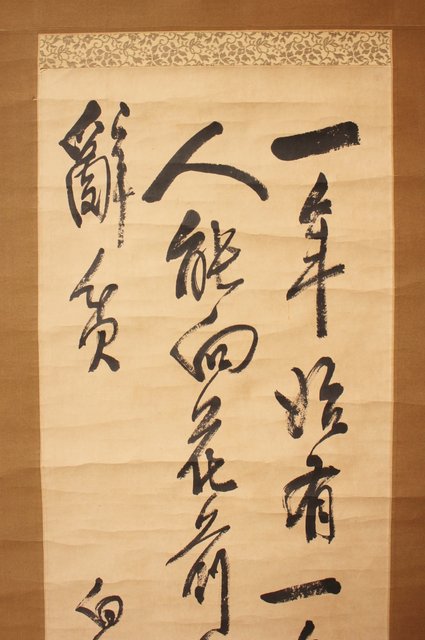 一年始有一
人能向花前
辭貧